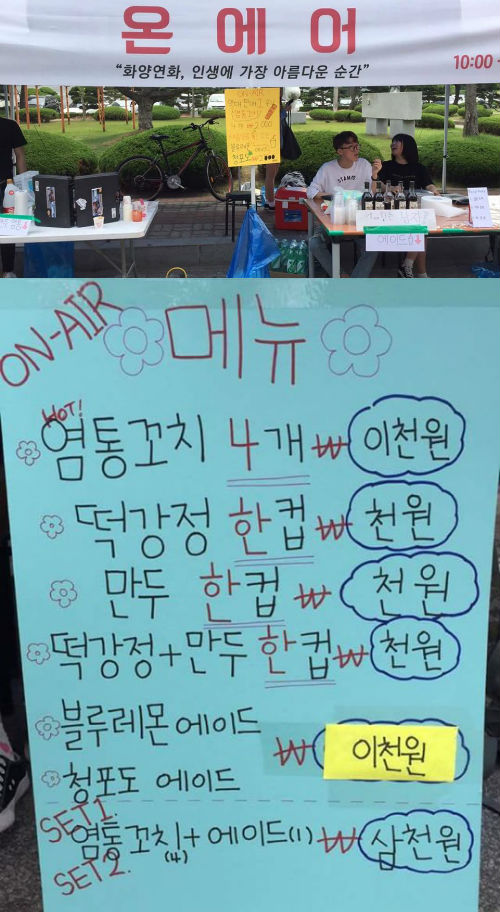 온에어
"화양연화, 인생에 가장 아름다운 순간"
10:00 -
ON-AIR
에이드
ON-AIR
메뉴
HOT!
염통꼬치 4개 ₩ 이천원
떡강정 한컵 ₩ 천원
만두 한컵 ₩ 천원
떡강정+만두 한컵 ₩ 천원
블루레몬에이드
₩ 이천원
청포도 에이드
SET1.
염통꼬치(4)+에이드(1) ₩ 삼천원
SET2.